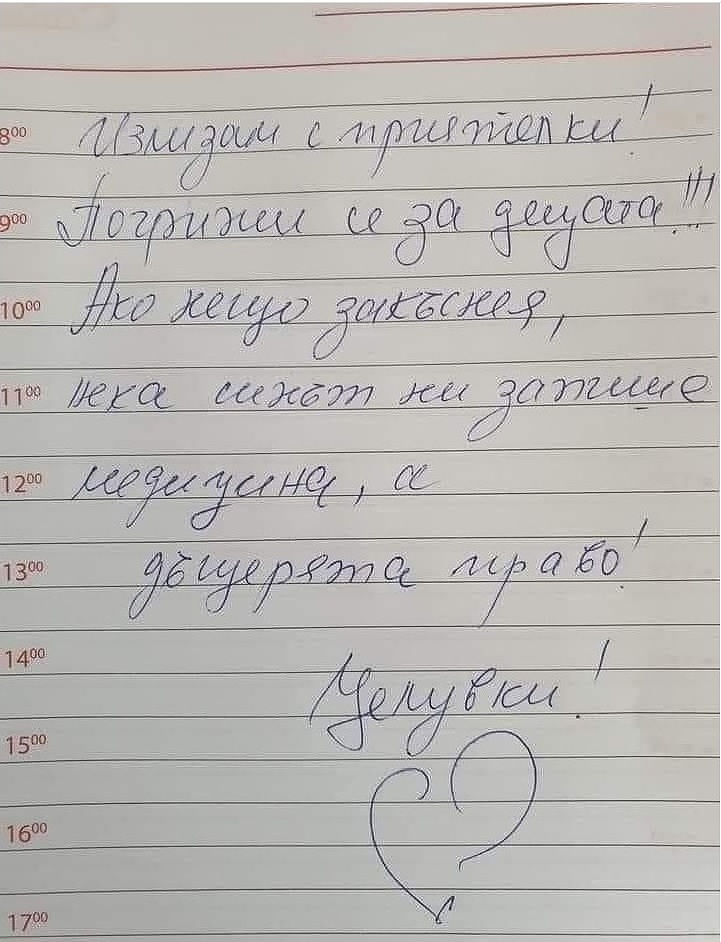 8⁰⁰ Излизам с приятелки!
9⁰⁰ Погрижи се за децата!!!
10⁰⁰ Ако нещо закъснея,
11⁰⁰ нека синът ни запише
12⁰⁰ медицина, а
13⁰⁰ дъщерята право!
14⁰⁰ Целувки!
15⁰⁰
16⁰⁰
17⁰⁰